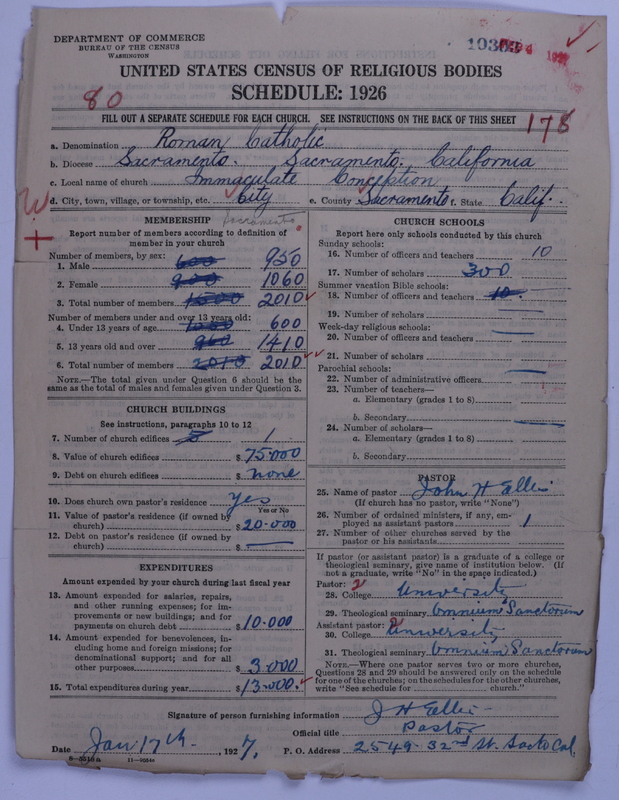 DEPARTMENT OF COMMERCE
BUREAU OF THE CENSUS
WASHINGTON
UNITED STATES CENSUS OF RELIGIOUS BODIES
SCHEDULE: 1926
80
FILL OUT A SEPARATE SCHEDULE FOR EACH CHURCH. SEE INSTRUCTIONS ON THE BACK OF THIS SHEET
178
a. Denomination Roman Catholic
b. Diocese Sacramento. Sacramento. California
c. Local name of church Immaculate Conception
d. City, town, village, or township, etc. City e. County Sacramento f. State Calif.
Sacramento
MEMBERSHIP
Report number of members according to definition of member in your church
Number of members, by sex:
1. Male 600 950
2. Female 900 1060
3. Total number of members 1500 2010
Number of members under and over 13 years old:
4. Under 13 years of age 600
5. 13 years old and over 1410
6. Total number of members 2010 2010
NOTE.—The total given under Question 6 should be the same as the total of males and females given under Question 3.
CHURCH BUILDINGS
See instructions, paragraphs 10 to 12
7. Number of church edifices 1
8. Value of church edifices $ 75.000
9. Debt on church edifices $ none
10. Does church own pastor's residence Yes
Yes or No
11. Value of pastor's residence (if owned by church) $ 20.000
12. Debt on pastor's residence (if owned by church) $ —
EXPENDITURES
Amount expended by your church during last fiscal year
13. Amount expended for salaries, repairs, and other running expenses; for improvements or new buildings; and for payments on church debt $ 10.000
14. Amount expended for benevolences, including home and foreign missions; for denominational support; and for all other purposes $ 3.000
15. Total expenditures during year $ 13.000.
CHURCH SCHOOLS
Report here only schools conducted by this church
Sunday schools:
16. Number of officers and teachers 10
17. Number of scholars 300
Summer vacation Bible schools:
18. Number of officers and teachers 10.
19. Number of scholars —
Week-day religious schools:
20. Number of officers and teachers
21. Number of scholars —
Parochial schools:
22. Number of administrative officers —
23. Number of teachers—
a. Elementary (grades 1 to 8)
b. Secondary —
24. Number of scholars—
a. Elementary (grades 1 to 8)
b. Secondary
PASTOR
25. Name of pastor John H Ellis
(If church has no pastor, write "None")
26. Number of ordained ministers, if any, employed as assistant pastors 1
27. Number of other churches served by the pastor or his assistants
If pastor (or assistant pastor) is a graduate of a college or theological seminary, give name of institution below. (If not a graduate, write "No" in the space indicated.)
Pastor: 2
28. College University
29. Theological seminary Omnium Sanctorum
Assistant pastor: 2
30. College University
31. Theological seminary Omnium Sanctorum
NOTE.—Where one pastor serves two or more churches, Questions 28 and 29 should be answered only on the schedule for one of the churches; on the schedules for the other churches, write "See schedule for ........ church."
Signature of person furnishing information J H Ellis
Official title Pastor
Date Jan 17th, 1927. P. O. Address 2549-32nd St. Sacto Cal.